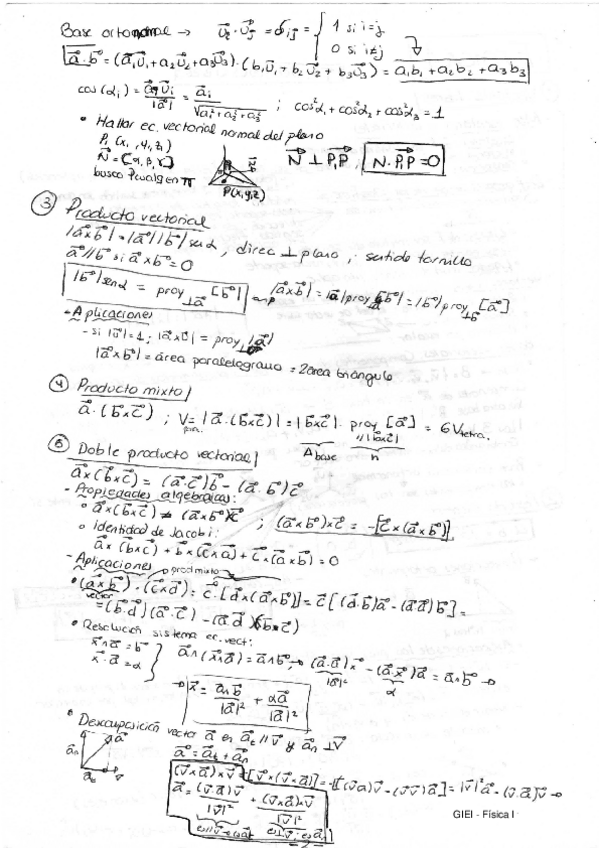 Base ortonormal → u⃗ᵢ · u⃗ⱼ = δᵢⱼ = { 1 si i=j
0 si i≠j
a⃗ · b⃗ = (a₁u⃗₁ + a₂u⃗₂ + a₃u⃗₃) · (b₁u⃗₁ + b₂u⃗₂ + b₃u⃗₃) = a₁b₁ + a₂b₂ + a₃b₃
cos(αᵢ) = a⃗ · u⃗ᵢ / |a⃗| = aᵢ / √(a₁² + a₂² + a₃²) ; cos²α₁ + cos²α₂ + cos²α₃ = 1
• Hallar ec. vectorial normal del plano
P₁ (x₁, y₁, z₁)
N⃗ = (α, β, γ)
N⃗ ⊥ P₁P⃗, N⃗ · P₁P⃗ = 0
busco P cualq en π
P(x,y,z)
③ Producto vectorial
|a⃗ x b⃗| = |a⃗| |b⃗| senα, direc ⊥ plano ; sentido tornillo
a⃗ // b⃗ si a⃗ x b⃗ = 0
|b⃗| senα = proy⊥a⃗ [b⃗] → |a⃗ x b⃗| = |a⃗| proy⊥a⃗ [b⃗] = |b⃗| proy⊥b⃗ [a⃗]
- Aplicaciones
- si |u⃗| = 1 ; |a⃗ x u⃗| = proy⊥ |a⃗|
|a⃗ x b⃗| = área paralelogramo = 2 área triángulo
④ Producto mixto
a⃗ · (b⃗ x c⃗) ; V = |a⃗ · (b⃗ x c⃗)| = |b⃗ x c⃗| · proy // |b⃗xc⃗| [a⃗] = 6 V tetra.
A base h
⑤ Doble producto vectorial
a⃗ x (b⃗ x c⃗) = (a⃗ · c⃗) b⃗ - (a⃗ · b⃗) c⃗
- Propiedades algebraicas:
• a⃗ x (b⃗ x c⃗) ≠ (a⃗ x b⃗) x c⃗ ; (a⃗ x b⃗) x c⃗ = -[c⃗ x (a⃗ x b⃗)]
o identidad de Jacobi:
a⃗ x (b⃗ x c⃗) + b⃗ x (c⃗ x a⃗) + c⃗ x (a⃗ x b⃗) = 0
- Aplicaciones → prod mixto
• (a⃗ x b⃗) · (c⃗ x d⃗) = c⃗ · [d⃗ x (a⃗ x b⃗)] = c⃗ [(d⃗ · b⃗) a⃗ - (d⃗ · a⃗) b⃗] =
vector
= (b⃗ · d⃗) (a⃗ · c⃗) - (a⃗ · d⃗) (b⃗ · c⃗)
• Resolución sistema ec. vect:
x⃗ ∧ a⃗ = b⃗
x⃗ · a⃗ = α
} a⃗ ∧ (x⃗ ∧ a⃗) = a⃗ ∧ b⃗ → (a⃗ · a⃗) x⃗ - (a⃗ · x⃗) a⃗ = a⃗ ∧ b⃗ →
|a⃗|² α
→ x⃗ = a⃗ ∧ b⃗ / |a⃗|² + α a⃗ / |a⃗|²
• Descomposición vector a⃗ en a⃗t // v⃗ y a⃗n ⊥ v⃗
a⃗ = a⃗t + a⃗n
(v⃗ x a⃗) x v⃗ = -[v⃗ x (v⃗ x a⃗)] = -[(v⃗ · a⃗) v⃗ - (v⃗ · v⃗) a⃗] = |v⃗|² a⃗ - (v⃗ · a⃗) v⃗ →
a⃗ = (v⃗ · a⃗) v⃗ / |v⃗|² + (v⃗ x a⃗) x v⃗ / |v⃗|²
GIEI - Física I